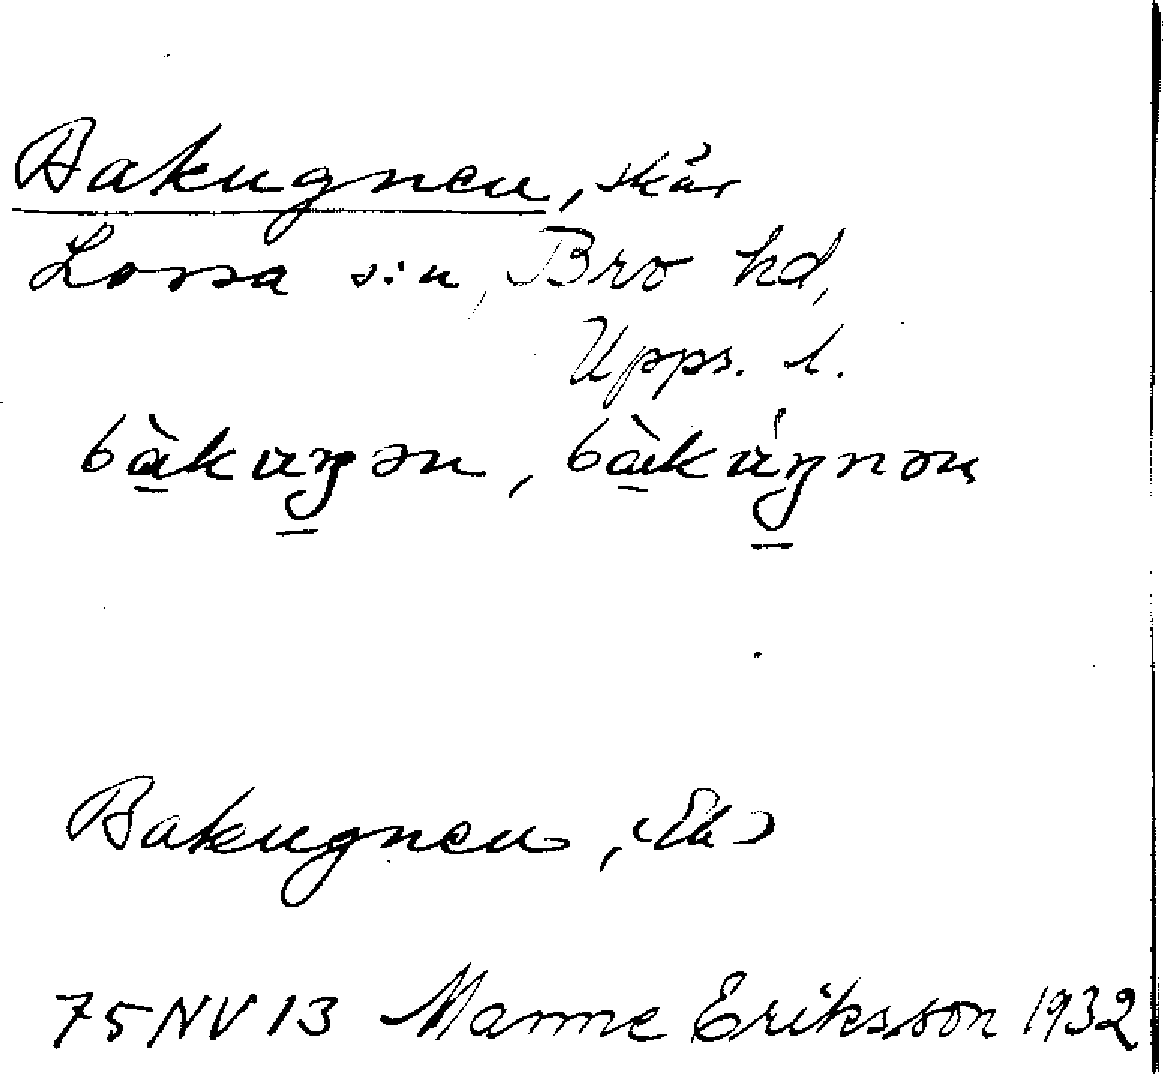 Bakugnen, skär
Lossa s:n, Bro hd,
Upps. l.
bàkuŋən, bàkúŋnən
Bakugnen, (Ek)
75NV13 Manne Eriksson 1932